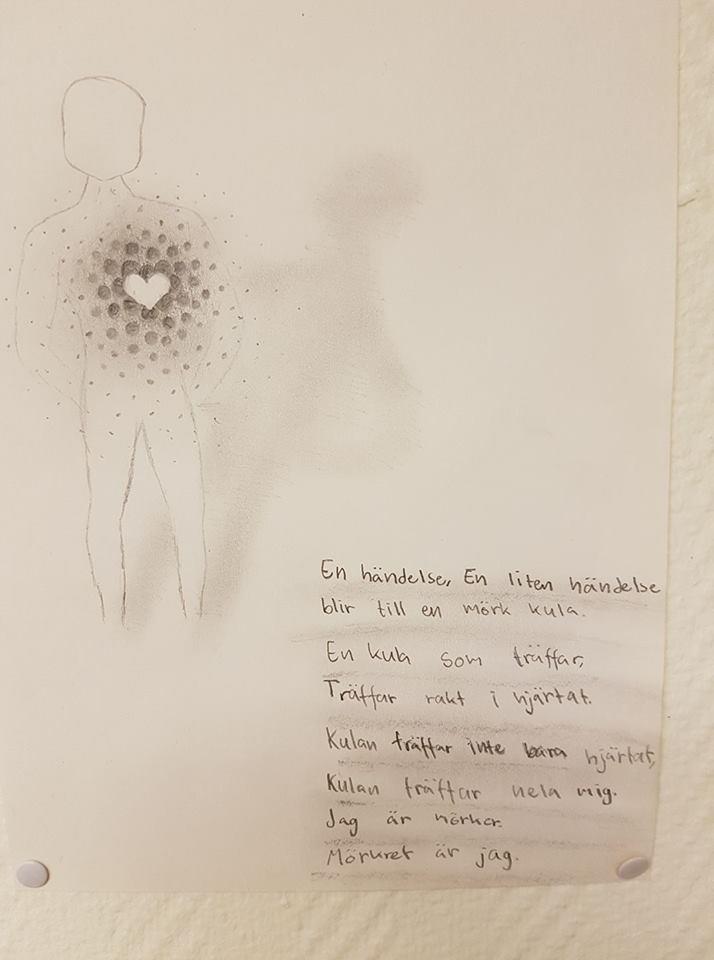 En händelse, En liten händelse
blir till en mörk kula.
En kula som träffar,
Träffar rakt i hjärtat.
Kulan träffar inte bara hjärtat,
Kulan träffar hela mig.
Jag är mörker.
Mörkret är jag.